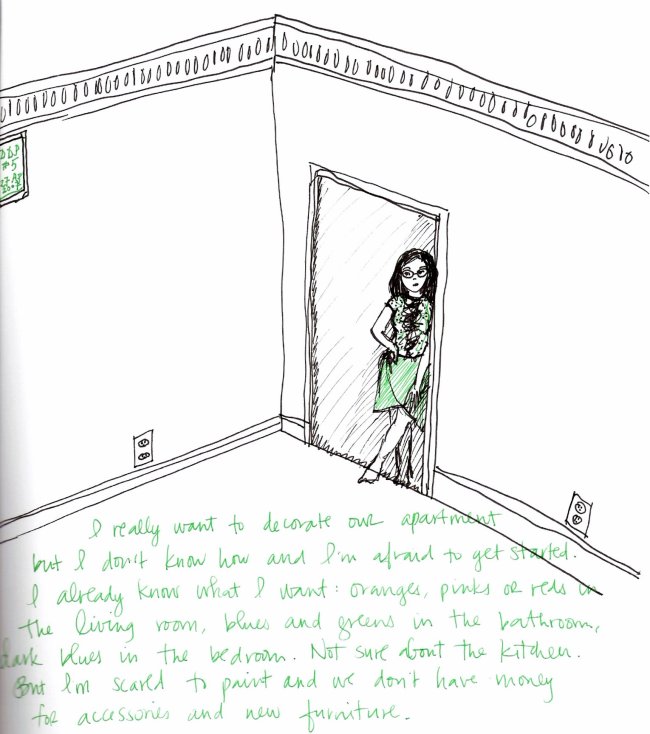 DDP
#5
I really want to decorate our apartment
but I don't know how and I'm afraid to get started.
I already know what I want: oranges, pinks or reds in
the living room, blues and greens in the bathroom,
dark blues in the bedroom. Not sure about the kitchen.
But I'm scared to paint and we don't have money
for accessories and new furniture.